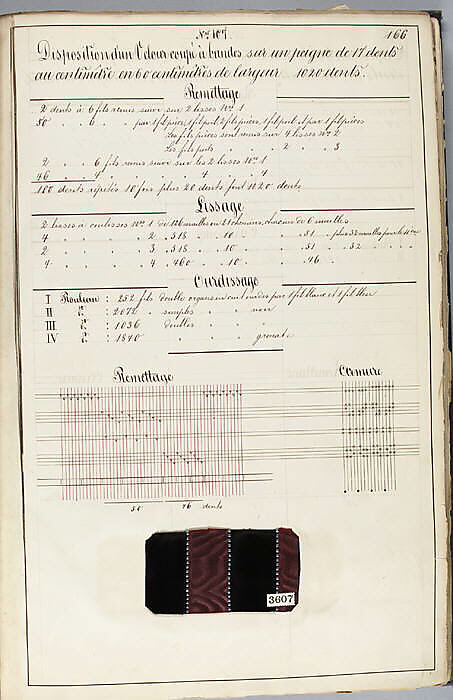 No. 107.
166
Disposition d'un Velours coupé à bandes sur un peigne de 17 dents
au centimètre en 60 centimètres de largeur 1020 dents.
Remettage
2 dents à 6 fils remis suivi sur 2 lisses No. 1
50 . . 6 . . par 1 fil pièce, 1 fil poil, 2 fils pièces, 1 fil poil, et par 1 fil pièce
Les fils pièces sont remis sur 4 lisses No. 2
Les fils poils . . . 2 . . 3
2 . . 6 fils remis suivi sur les 2 lisses No. 1
46 . . 4 . . 4 . . 4
100 dents répétés 10 fois plus 20 dents font 1020 dents
Lissage
2 lisses à coulisses No. 1 de 126 mailles en 21 chemins, chacun de 6 mailles
4 . . 2 . 518 . . 10 . . 51 . plus 8 mailles pour le
2 . . 3 . 518 . . 10 . . 51 . . 52
4 . . 4 . 460 . . 10 . . 46 .
Ourdissage
I Rouleau : 252 fils double organsin ourdis par 1 fil blanc et 1 fil bleu
II d° : 2072 . simples . . noir
III d° : 1036 doubles . .
IV d° : 1840 . . . grenat
Remettage
Armure
50 46 dents
3607